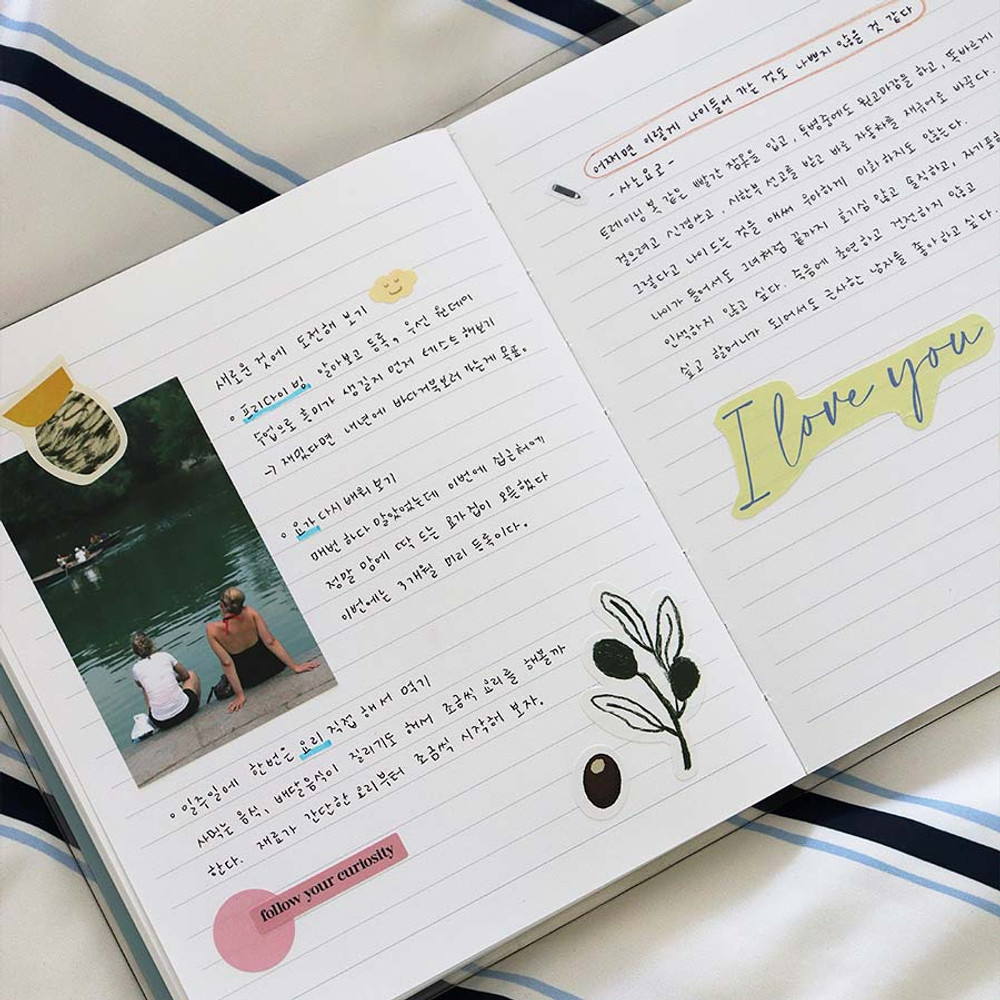 새로운 것에 도전해 보기
프리다이빙 알아보고 등록, 우선 원데이
수업으로 흥미가 생길지 먼저 테스트해보기
→ 재밌다면 내년에 바다거북보러 가는게 목표.
요가 다시 배워 보기
매번 하다 말았었는데 이번에 집근처에
정말 맘에 딱 드는 요가집이 오픈했다
이번에는 3개월 미리 등록이다.
일주일에 한번은 요리 직접 해서 먹기
사먹는 음식, 배달음식이 질리기도 해서 조금씩 요리를 해볼까
한다. 재료가 간단한 요리부터 조금씩 시작해 보자.
follow your curiosity
어쩌면 이렇게 나이들어 가는 것도 나쁘지 않을 것 같다
- 사노요코 -
트레이닝 복 같은 빨간 잠옷을 입고, 투병중에도 원고마감을 하고, 똑바르게
걸으려고 신경쓰고, 시한부 선고를 받고 바로 자동차를 재규어로 바꾼다.
그렇다고 나이드는 것을 애써 우아하게 미화하지도 않는다.
나이가 들어서도 그녀처럼 끝까지 호기심 많고 솔직하고, 자기
인색하지 않고 싶다. 죽음에 초연하고 건전하지 않고
싶고 할머니가 되어서도 근사한 남자를 좋아하고 싶다.
I love you